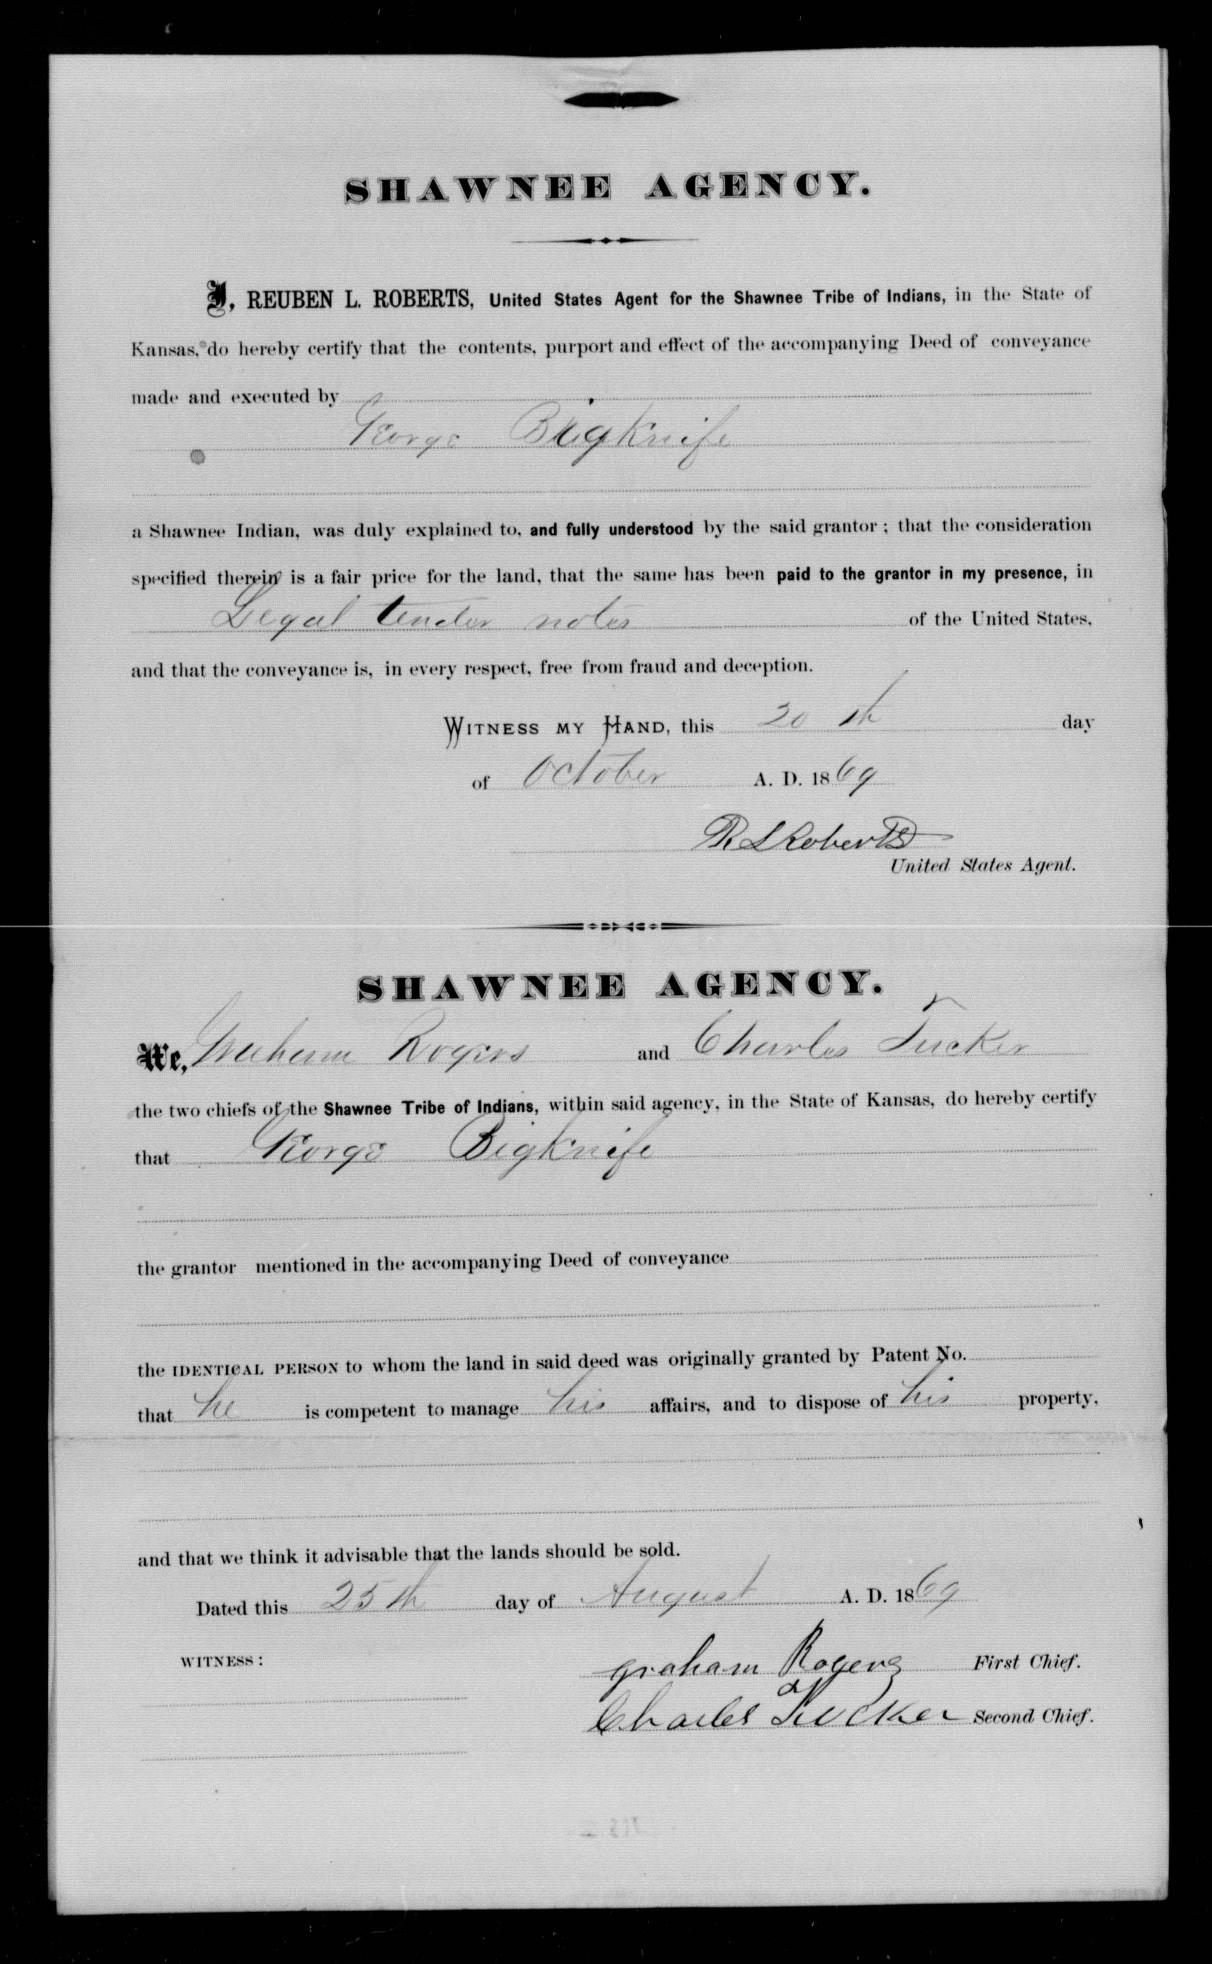 SHAWNEE AGENCY.
I, REUBEN L. ROBERTS, United States Agent for the Shawnee Tribe of Indians, in the State of
Kansas, do hereby certify that the contents, purport and effect of the accompanying Deed of conveyance
made and executed by
George Bigknife
a Shawnee Indian, was duly explained to, and fully understood by the said grantor; that the consideration
specified therein is a fair price for the land, that the same has been paid to the grantor in my presence, in
Legal tender notes of the United States,
and that the conveyance is, in every respect, free from fraud and deception.
WITNESS MY HAND, this 20th day
of October A. D. 1869
R L Roberts
United States Agent.
SHAWNEE AGENCY.
We, Graham Rogers and Charles Tucker
the two chiefs of the Shawnee Tribe of Indians, within said agency, in the State of Kansas, do hereby certify
that George Bigknife
the grantor mentioned in the accompanying Deed of conveyance
the IDENTICAL PERSON to whom the land in said deed was originally granted by Patent No.
that he is competent to manage his affairs, and to dispose of his property,
and that we think it advisable that the lands should be sold.
Dated this 25th day of August A. D. 1869
WITNESS:
graham Rogers First Chief.
Charles Tucker Second Chief.